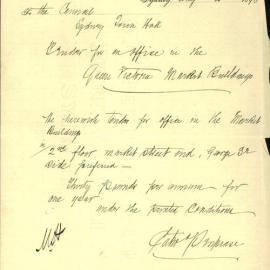 To the Council
Sydney Town Hall
Tender for an office in the
Queen Victoria Market Buildings
tender for office in the Market
Buildings
2nd floor Market Street end, George St
Side preferred —
Thirty Pounds per annum — for
one year
under the printed Conditions